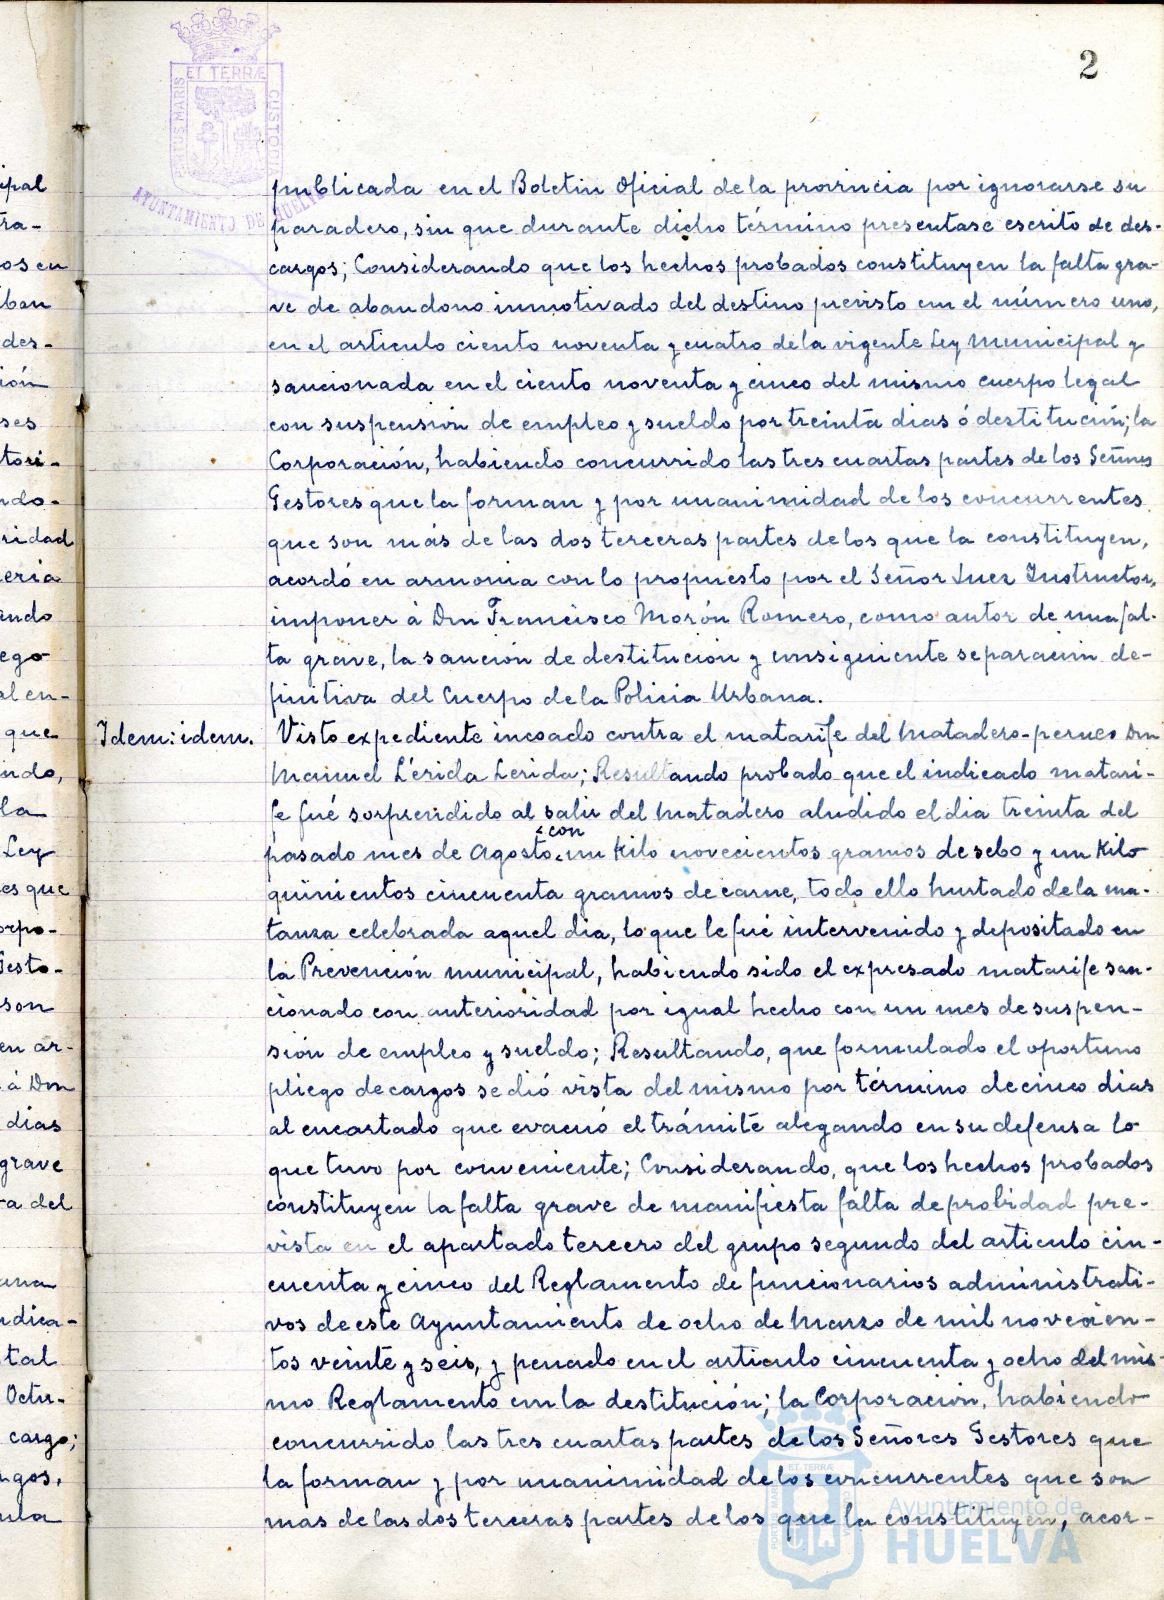 2
PORTUS MARIS ET TERRÆ CUSTODIA
AYUNTAMIENTO DE HUELVA
publicada en el Boletin Oficial de la provincia por ignorarse su
paradero, sin que durante dicho término presentase escrito de des-
cargos; Considerando que los hechos probados constituyen la falta gra-
ve de abandono inmotivado del destino previsto em el número uno,
en el articulo ciento noventa y cuatro de la vigente Ley Municipal y
sancionada en el ciento noventa y cinco del mismo cuerpo legal
con suspensión de empleo y sueldo por treinta dias ó destitución; la
Corporación, habiendo concurrido las tres cuartas partes de los Señores
Gestores que la forman y por unanimidad de los concurrentes
que son más de las dos terceras partes de los que la constituyen,
acordó en armonia con lo propuesto por el Señor Juez Instructor,
imponer á Don Francisco Morón Romero, como autor de una fal-
ta grave, la sanción de destitución y consiguiente separación de-
finitiva del Cuerpo de la Policia Urbana.
Idem: idem. Visto expediente incoado contra el matarife del Matadero-perneo Don
Manuel Lérida Lerida; Resultando probado que el indicado matari-
fe fué sorprendido al salir del Matadero aludido el dia treinta del
pasado mes de Agosto con un Kilo novecientos gramos de sebo y un Kilo
quinientos cincuenta gramos de carne, todo ello hurtado de la ma-
tanza celebrada aquel dia, lo que le fué intervenido y depositado en
la Prevención municipal, habiendo sido el expresado matarife san-
cionado con anterioridad por igual hecho con un mes de suspen-
sión de empleo y sueldo; Resultando, que formulado el oportuno
pliego de cargos se dió vista del mismo por término de cinco dias
al encartado que evacuó el trámite alegando en su defensa lo
que tuvo por conveniente; Considerando, que los hechos probados
constituyen la falta grave de manifiesta falta de probidad pre-
vista en el apartado tercero del grupo segundo del articulo cin-
cuenta y cinco del Reglamento de funcionarios administrati-
vos de este Ayuntamiento de ocho de Marzo de mil novecien-
tos veinte y seis, y penado en el articulo cincuenta y ocho del mis-
mo Reglamento con la destitución; la Corporación, habiendo
concurrido las tres cuartas partes de los Señores Gestores que
la forman y por unanimidad de los concurrentes que son
mas de las dos terceras partes de los que la constituyen, acor-
Ayuntamiento de
HUELVA